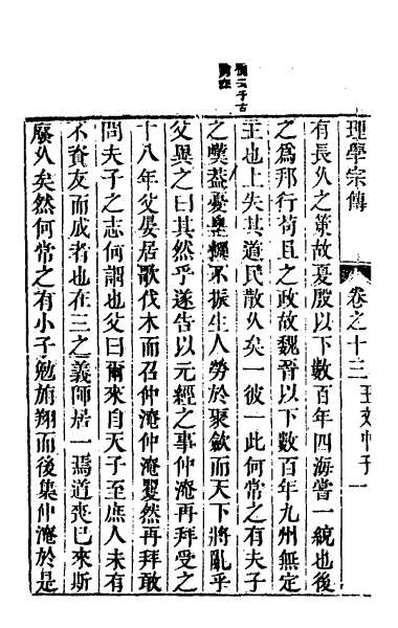 理學宗傳 卷之十三 王文中子 一
有長久之策故夏殷以下數百年四海嘗一統也後
之爲邦行苟且之政故魏晉以下數百年九州無定
主也上失其道民散久矣一彼一此何常之有夫子
之歎蓋憂皇綱不振生人勞於聚歛而天下將亂乎
父異之曰其然乎遂告以元經之事仲淹再拜受之
十八年父晏居歌伐木而召仲淹仲淹矍然再拜敢
問夫子之志何謂也父曰爾來自天子至庶人未有
不資友而成者也在三之義師居一焉道喪已來斯
廢久矣然何常之有小子勉旃翔而後集仲淹於是